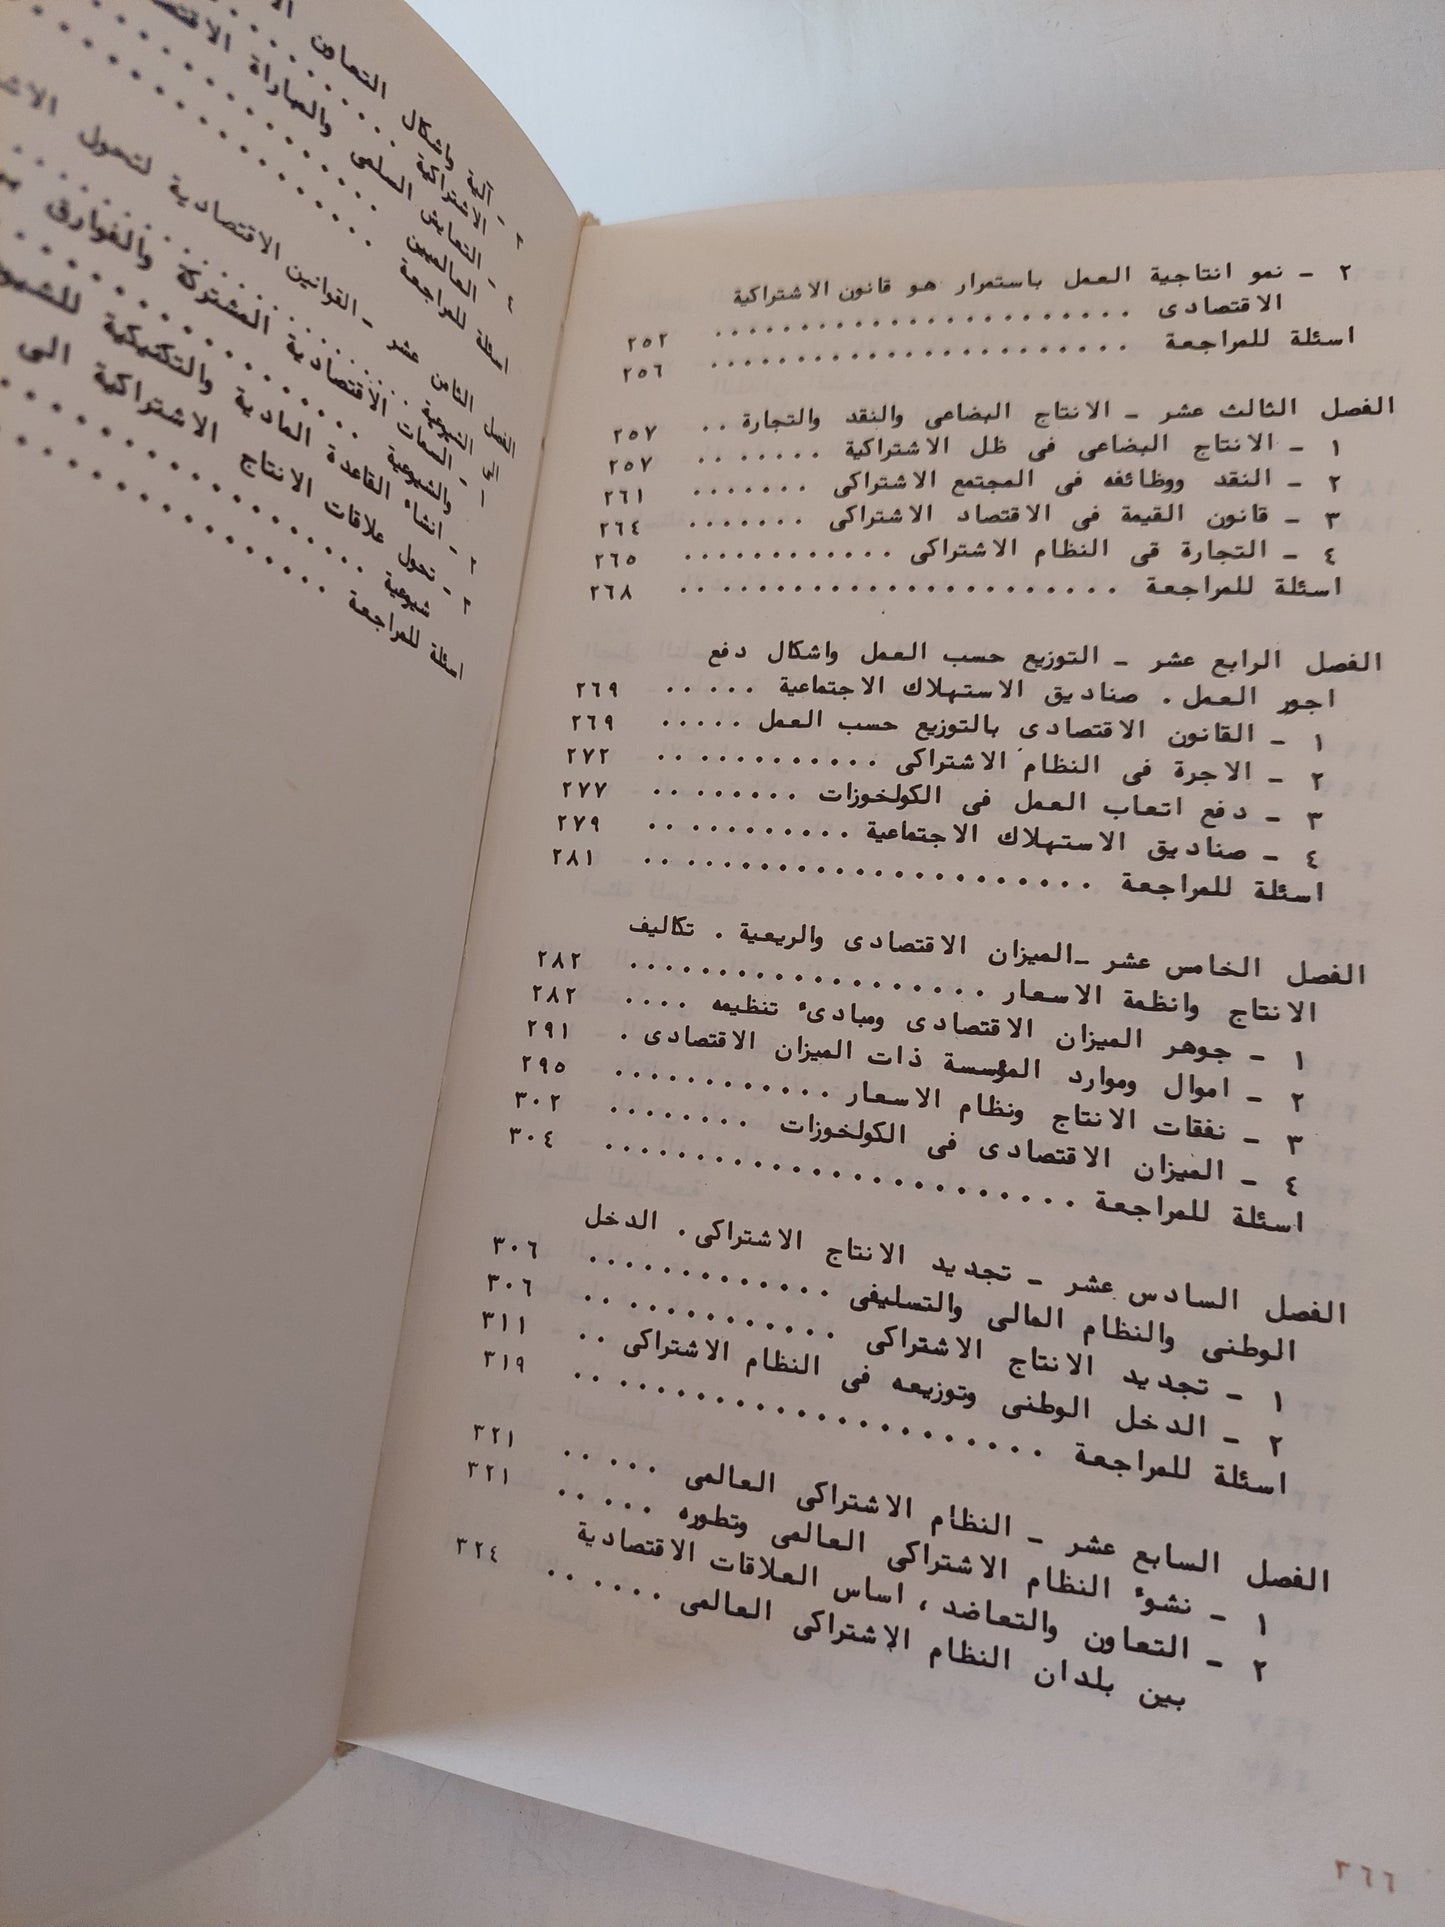 ٢ ـ نمو انتاجية العمل باستمرار هو قانون الاشتراكية
الاقتصادى . . . . . . . . . . . . . . . . . . . . . . ٢٥٢
اسئلة للمراجعة . . . . . . . . . . . . . . . . . . . . ٢٥٦
الفصل الثالث عشر ـ الانتاج البضاعى والنقد والتجارة . . ٢٥٧
١ ـ الانتاج البضاعى فى ظل الاشتراكية . . . . . . . ٢٥٧
٢ ـ النقد ووظائفه فى المجتمع الاشتراكى . . . . . . . ٢٦١
٣ ـ قانون القيمة فى الاقتصاد الاشتراكى . . . . . . . ٢٦٤
٤ ـ التجارة قى النظام الاشتراكى . . . . . . . . . . . . ٢٦٥
اسئلة للمراجعة . . . . . . . . . . . . . . . . . . . . . . ٢٦٨
الفصل الرابع عشر ـ التوزيع حسب العمل واشكال دفع
اجور العمل . صناديق الاستهلاك الاجتماعية . . . . . ٢٦٩
١ ـ القانون الاقتصادى بالتوزيع حسب العمل . . . . . ٢٦٩
٢ ـ الاجرة فى النظام الاشتراكى . . . . . . . . . . . . ٢٧٢
٣ ـ دفع اتعاب العمل فى الكولخوزات . . . . . . . . . ٢٧٧
٤ ـ صناديق الاستهلاك الاجتماعية . . . . . . . . . . . ٢٧٩
اسئلة للمراجعة . . . . . . . . . . . . . . . . . . . . . ٢٨١
الفصل الخامس عشر ـالميزان الاقتصادى والريعية . تكاليف
الانتاج وانظمة الاسعار . . . . . . . . . . . . . . . . . ٢٨٢
١ ـ جوهر الميزان الاقتصادى ومبادىء تنظيمه . . . . ٢٨٢
٢ ـ اموال وموارد المؤسسة ذات الميزان الاقتصادى . ٢٩١
٣ ـ نفقات الانتاج ونظام الاسعار . . . . . . . . . . . . ٢٩٥
٤ ـ الميزان الاقتصادى فى الكولخوزات . . . . . . . . ٣٠٢
اسئلة للمراجعة . . . . . . . . . . . . . . . . . . . . . . ٣٠٤
الفصل السادس عشر ـ تجديد الانتاج الاشتراكى . الدخل
الوطنى والنظام المالى والتسليفى . . . . . . . . . . . . ٣٠٦
١ ـ تجديد الانتاج الاشتراكى . . . . . . . . . . . . ٣٠٦
٢ ـ الدخل الوطنى وتوزيعه فى النظام الاشتراكى . . ٣١١
اسئلة للمراجعة . . . . . . . . . . . . . . . . . . . . . . ٣١٩
الفصل السابع عشر ـ النظام الاشتراكى العالمى . . . . . ٣٢١
١ ـ نشوء النظام الاشتراكى العالمى وتطوره . . . . . ٣٢١
٢ ـ التعاون والتعاضد ، اساس العلاقات الاقتصادية
بين بلدان النظام الاشتراكى العالمى . . . . . . ٣٢٤
٣٦٦
ـ آلية واشكال التعاون
الاشتراكية
٤ ـ التعايش السلمى والمباراة
العالميين
اسئلة للمراجعة
الفصل الثامن عشر ـ القوانين الاقتصادية لتحول
الى الشيوعية
١ ـ السمات الاقتصادية المشتركة والفوارق
والشيوعية
٢ ـ انشاء القاعدة المادية والتكنيكية
ـ تحول علاقات الانتاج الاشتراكية الى
شيوعية
اسئلة للمراجعة